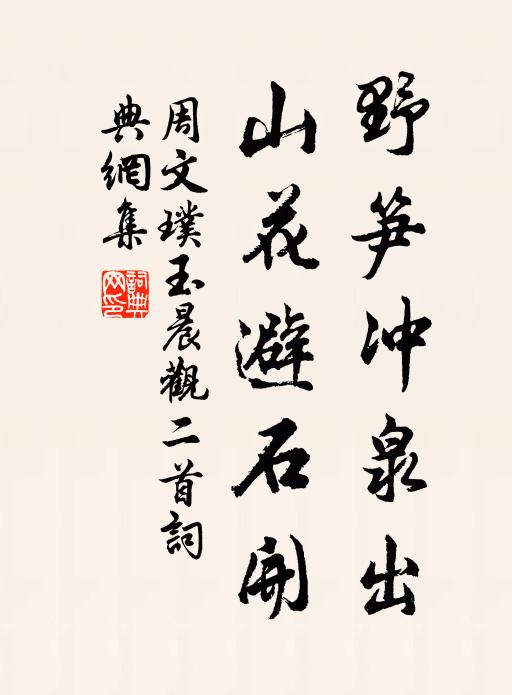 野笋冲泉出
山花避石開
周文璞玉晨觀二首詞
典網集
詞典網印